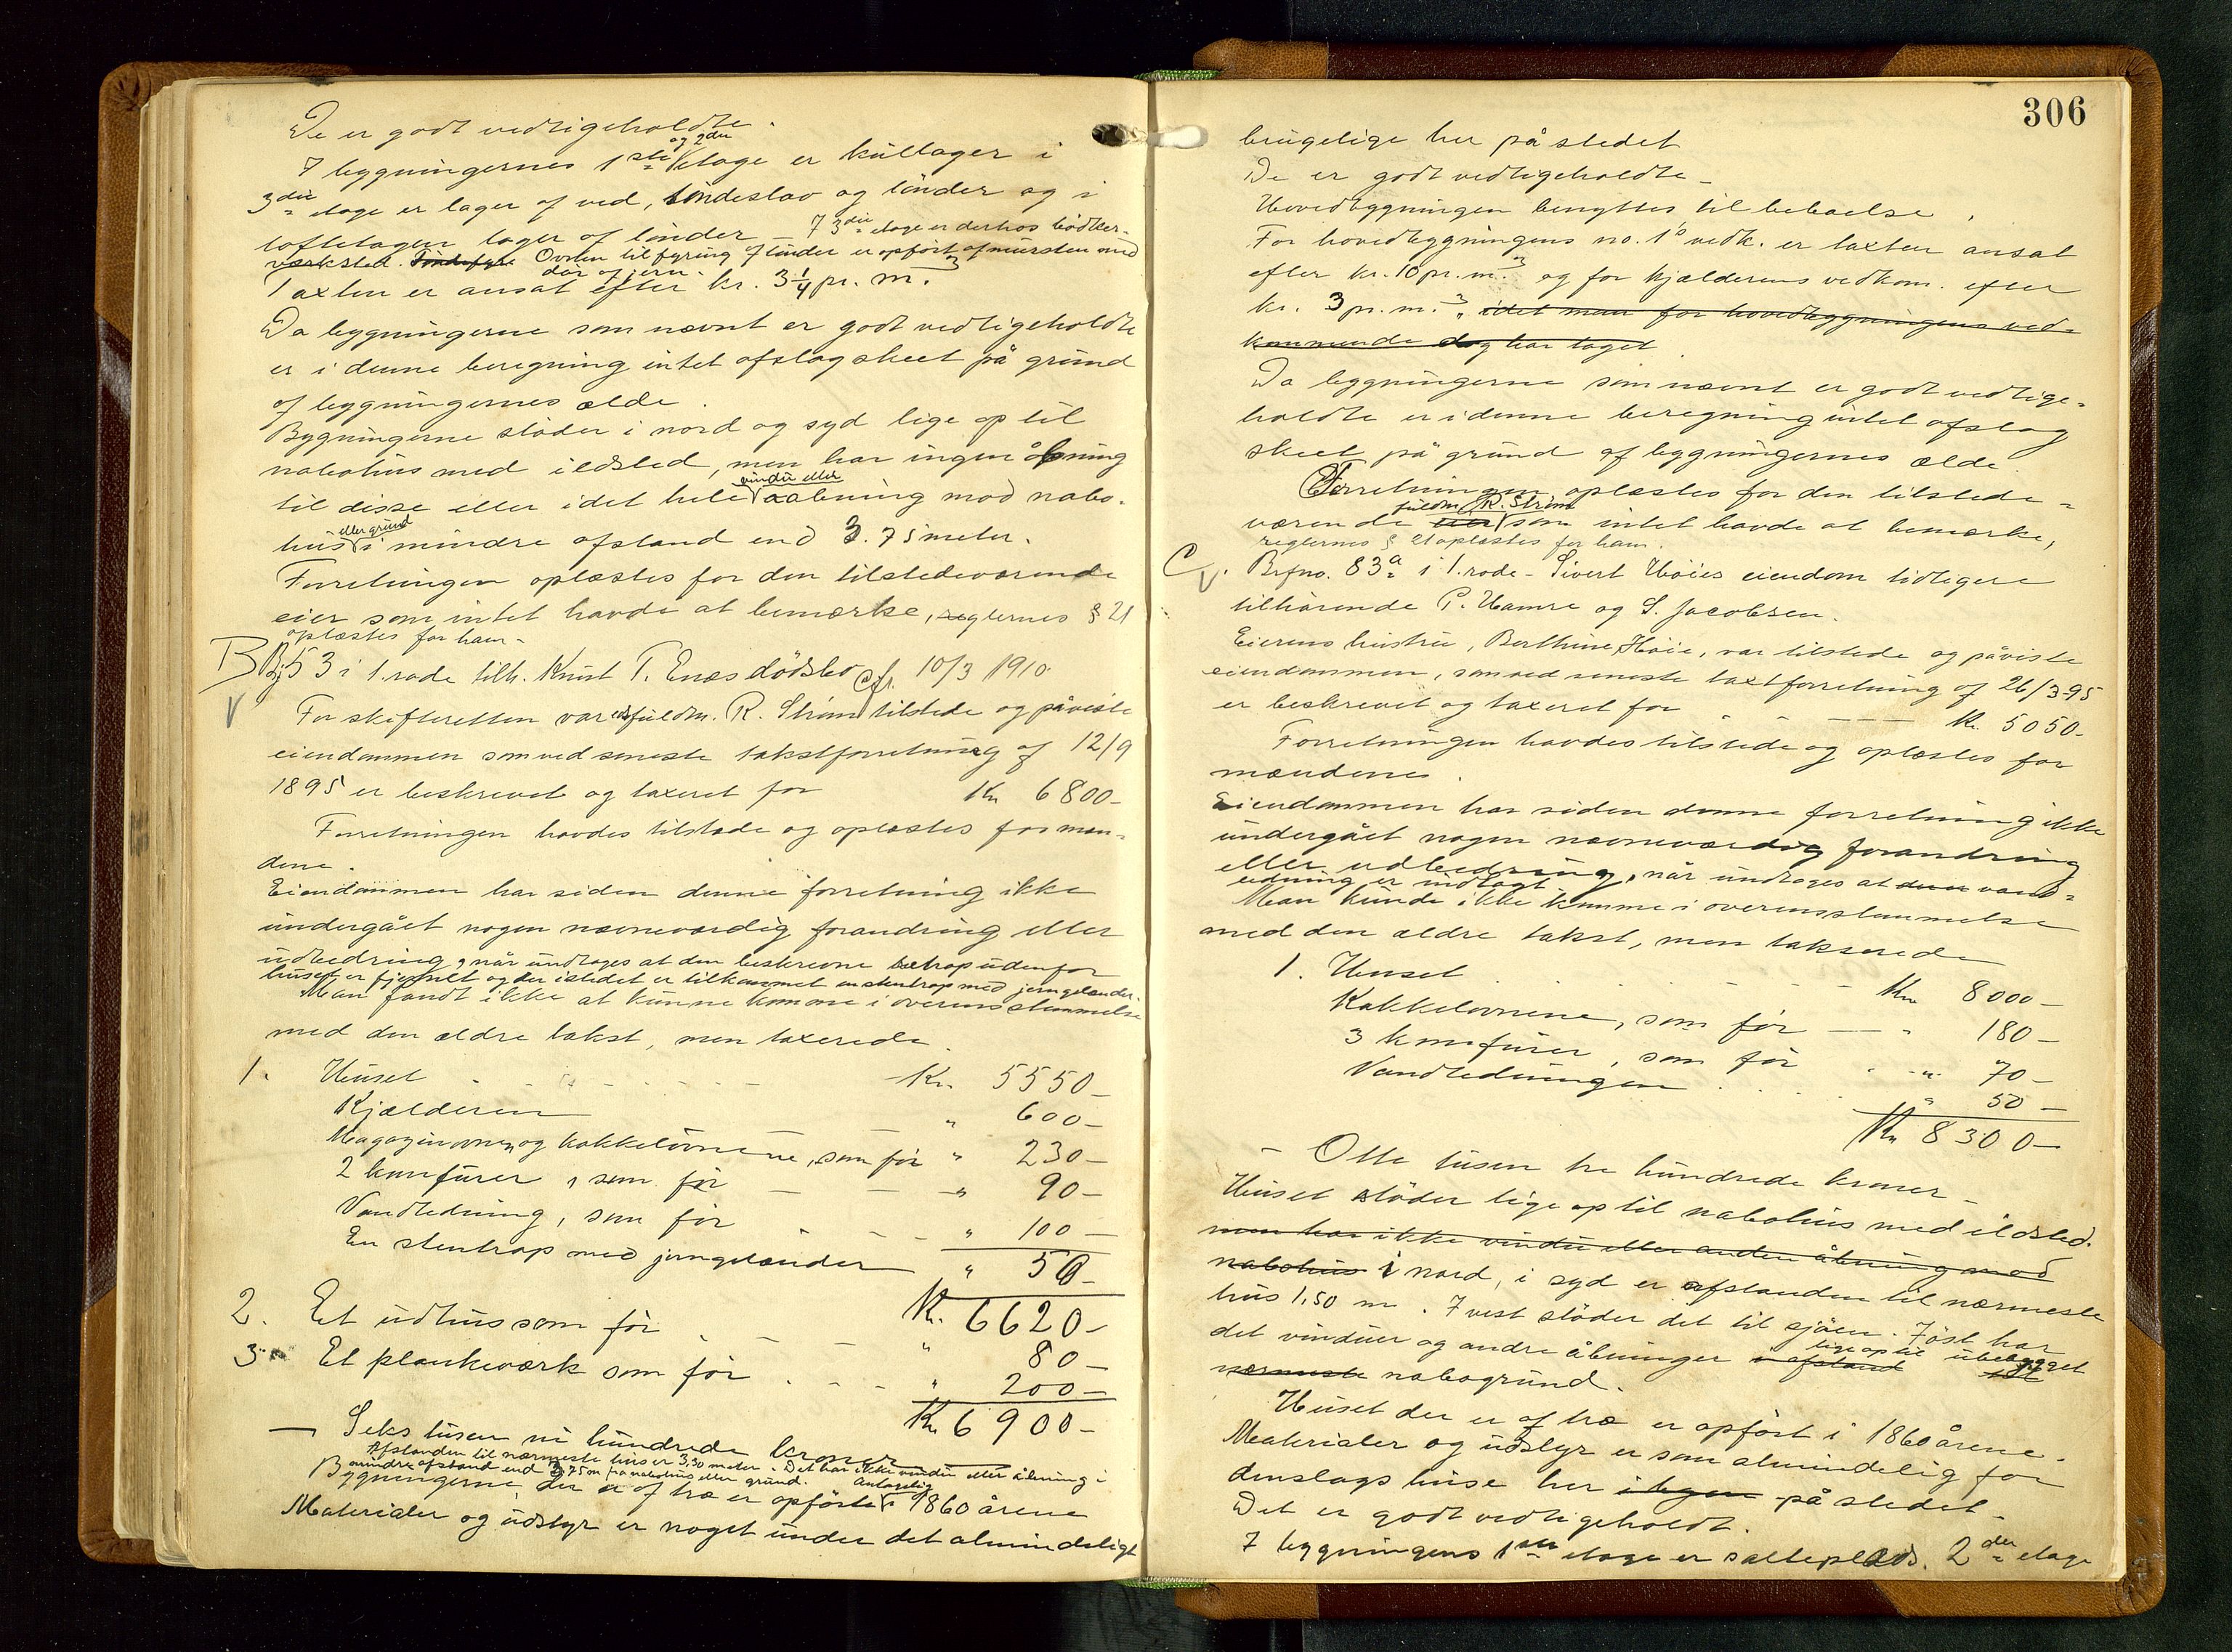 De er godt vedligeholdte.
I bygningernes 1ste og 2den etage er kullager i
3die etage er lager af ved, töndestav og tönder og i
loftetagen lager af tönder – I 3die etage er derhos bödker-
værksted. Töndefyr Ovnen til fyring af tönder er opfört af mursten med
dör af jern.
Taxten er ansat efter kr. 3 1/4 pr. m.3
Da bygningerne som nævnt er godt vedligeholdte
er i denne beregning intet afslag skeet på grund
af bygningernes ælde.
Bygningerne stöder i nord og syd lige op til
nabohus med ildsted, men har ingen åbning
til disse eller idet hele vindu eller aabning mod nabo-
hus eller grund i mindre afstand end 3.75 meter.
Forretningen oplæstes for den tilstedeværende
eier som intet havde at bemærke, reglernes § 21
oplæstes for ham.
B Bf 53 i 1. rode tilh. Knut T. Enes dödsbo cfr. 10/3 1910
V For skifteretten var fuldm. R. Ström tilstede og påviste
eiendommen som ved seneste takstforretning af 12/9
1895 er beskrevet og taxeret for Kr 6800-
Forretningen havdes tilstede og oplæstes for mæn-
dene.
Eiendommen har siden denne forretning ikke
undergået nogen nævneværdig forandring eller
udbedring, når undtages at den beskrevne trap udenfor
huset er fjernet og der istedet er tilkommet en stentrap med jerngelænder.
Man fandt ikke at kunne komme i overensstemmelse
med den ældre takst, men taxerede
1. Huset Kr. 5550-
Kjælderen " 600-
Magazinovnen og kakkelovnene, som för " 230-
2 komfurer, som för " 90-
Vandledning, som för " 100-
En stentrap med jerngelænder " 50-
Kr. 6620-
2. Et udhus som för " 80-
3. Et plankeværk som för " 200-
Kr 6900-
— Seks tusen ni hundrede kroner —
Afstanden til nærmeste hus er 3,30 meter. Det har ikke vindu eller åbning i
mindre afstand end 3,75 m fra nabohus eller grund.
Bygningerne der er af træ er opförte Antagelig i 1860 årene
Materialer og udstyr er noget under det almindeligt
306
brugelige her på stedet
De er godt vedligeholdte –
Hovedbygningen benyttes til beboelse.
For hovedbygningens no. 1s vedk. er taxten ansat
efter kr. 10 pr. m.3 og for kjælderens vedkom. efter
kr. 3 pr. m.3, idet man for hovedbygningens ved-
kommende dog har taget
Da bygningerne som nævnt er godt vedlige-
holdte er i denne beregning intet afslag
skeet på grund af bygningernes ælde.
Forretningen oplæstes for den tilstede-
værende eier fuldm. R. Ström som intet havde at bemærke,
reglernes § 21 oplæstes for ham.
C V. Brfno. 83a i 1. rode – Sivert Höies eiendom tidligere
tilhörende P. Hamre og S. Jacobsen.
Eierens hustru, Berthine Höie, var tilstede og påviste
eiendommen, som ved seneste taxtforretning af 26/3-95
er beskrevet og taxeret for Kr. 5050-
Forretningen havdes tilstede og oplæstes for
mændene.
Eiendommen har siden denne forretning ikke
undergået nogen nævneværdig forandring
eller udbedring, når undtages at den vand-
ledning er indlagt.
Man kunde ikke komme i overensstemmelse
med den ældre takst, men takserede
1. Huset Kr 8000-
Kakkelovnene, som för " 180-
3 komfurer, som för " 70-
Vandledningen " 50-
Kr 8300-
– Otte tusen tre hundrede kroner –
Huset stöder lige op til nabohus med ildsted.
men har ikke vindu eller anden åbning mod
nabohus i nord, i syd er afstanden til nærmeste
hus 1,50 m. I vest stöder det til sjöen. I öst har
det vinduer og andre åbninger i afstand lige op til ubebygget
nærmeste nabogrund.
Huset der er af træ er opfört i 1860 årene.
Materialer og udstyr er som almindelig for
denslags huse her i byen på stedet –
Det er godt vedligeholdt.
I bygningens 1ste etage er salteplads. 2den etage